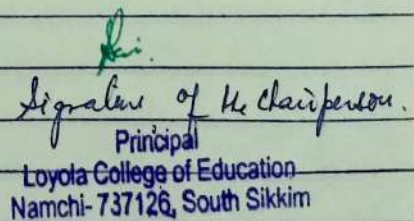 Signature of the Chairperson.
Principal
Loyola College of Education
Namchi- 737126, South Sikkim